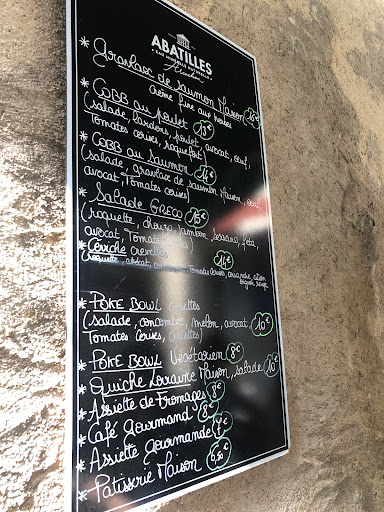 ABATILLES
* Gravlax de saumon Maison 16€
crème fine aux herbes
* COBB au poulet 13€
(salade, lardons, poulet, avocat, œuf,
Tomates cerises, roquefort)
* COBB au saumon 14€
(salade, gravlax de saumon Maison, œuf,
avocat, Tomates cerises)
* Salade GRECO
(roquette, chorizo, Jambon Serrano, feta,
avocat, Tomates
* Ceviche crevettes 14€
(roquette, avocat, Tomates cerises, citron
oignon rouge
* POKE BOWL
(salade, concombre, melon, avocat, 10€
Tomates cerises,
* POKE BOWL Végétarien 8€
* Quiche Lorraine Maison, salade 10€
* Assiette de Fromages 8€
* Café Gourmand 8€
* Assiette Gourmande
* Patisserie Maison 6,50€